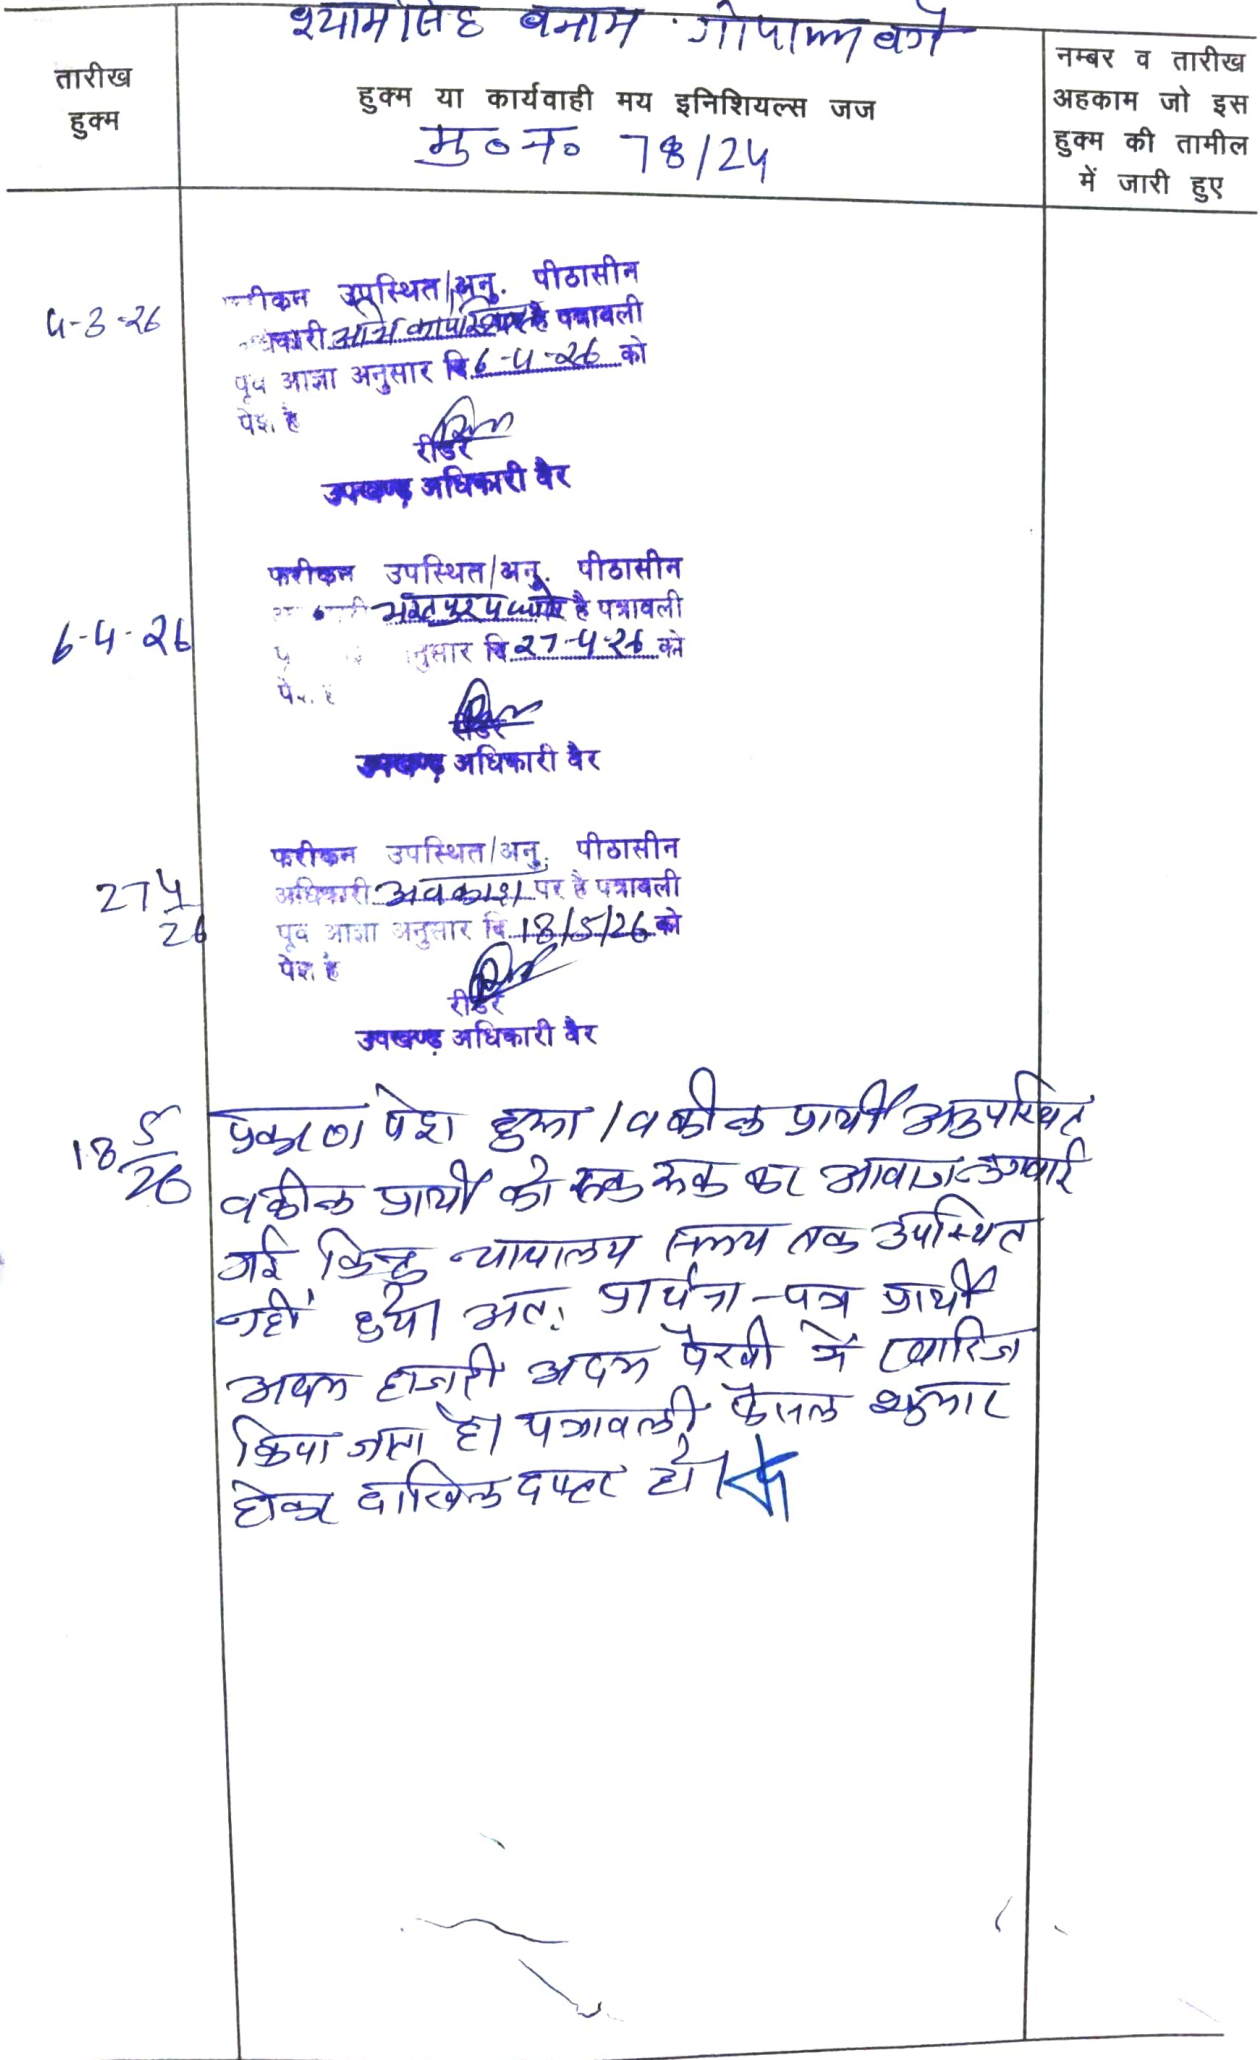 श्यामसिंह बनाम गोपाल वगै
तारीख
हुक्म
हुक्म या कार्यवाही मय इनिशियल्स जज
मु० न० 78/24
नम्बर व तारीख
अहकाम जो इस
हुक्म की तामील
में जारी हुए
4-3-26
उपस्थित/अनु. पीठासीन
है पत्रावली
पूर्व आज्ञा अनुसार दि 6-4-26 को
पेश है
रीडर
उपखण्ड अधिकारी वैर
6-4-26
फरीकन उपस्थित/अनु. पीठासीन
है पत्रावली
दि 27-4-26 को
रीडर
उपखण्ड अधिकारी वैर
27 4/26
फरीकन उपस्थित/अनु. पीठासीन
अधिकारी अवकाश पर है पत्रावली
पूर्व आज्ञा अनुसार दि 18/5/26 को
पेश है
रीडर
उपखण्ड अधिकारी वैर
18 5/26
प्रकरण पेश हुआ । वकील प्रार्थी अनुपस्थित
वकील प्रार्थी को रूक रूक कर आवाज लगवाई
गई किन्तु न्यायालय समय तक उपस्थित
नहीं हुया। अतः प्रार्थना-पत्र प्रार्थी
अदम हाजरी अदम पैरवी में खारिज
किया जाता है। पत्रावली फैसल शुमार
होकर दाखिल दफ्तर हो।